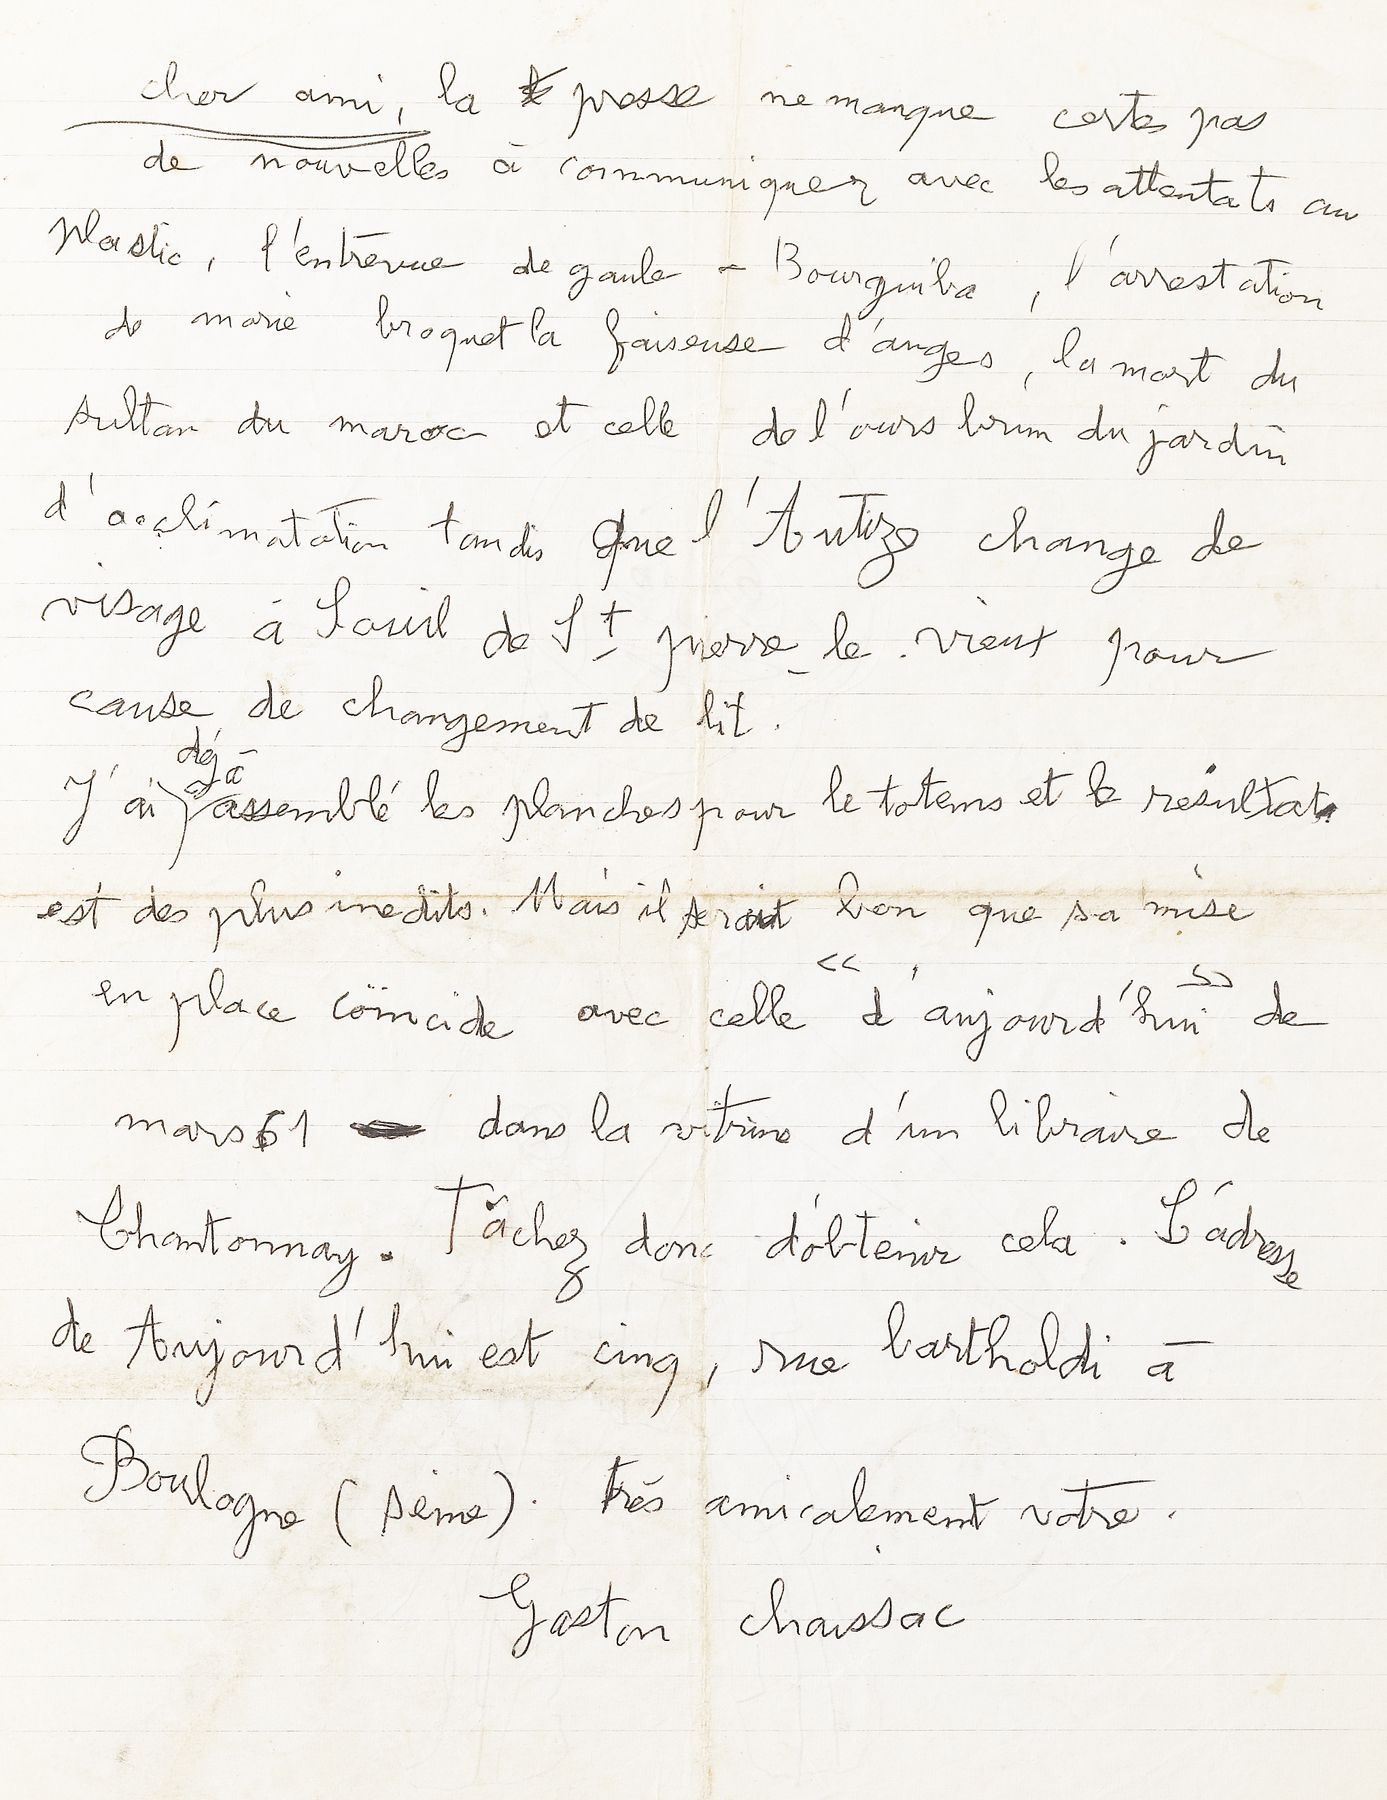 cher ami, la presse ne manque certes pas
de nouvelles à communiquer avec les attentats au
plastic, l'entrevue de gaule - Bourguiba, l'arrestation
de marie broquet la faiseuse d'anges, la mort du
sultan du maroc et celle de l'ours brun du jardin
d'acclimatation tandis que l'Autize change de
visage à Souil de St pierre-le-vieux pour
cause de changement de lit.
déjà
J'ai assemblé les planches pour le totems et le resultat
est des plus inedits. Mais il serait bon que sa mise
en place coïncide avec celle « d'aujourd'hui » de
mars 61 dans la vitrine d'un libraire de
Chantonnay. Tâchez donc d'obtenir cela. L'adresse
de Aujourd'hui est cinq, rue bartholdi à
Boulogne (seine). très amicalement votre.
Gaston chaissac